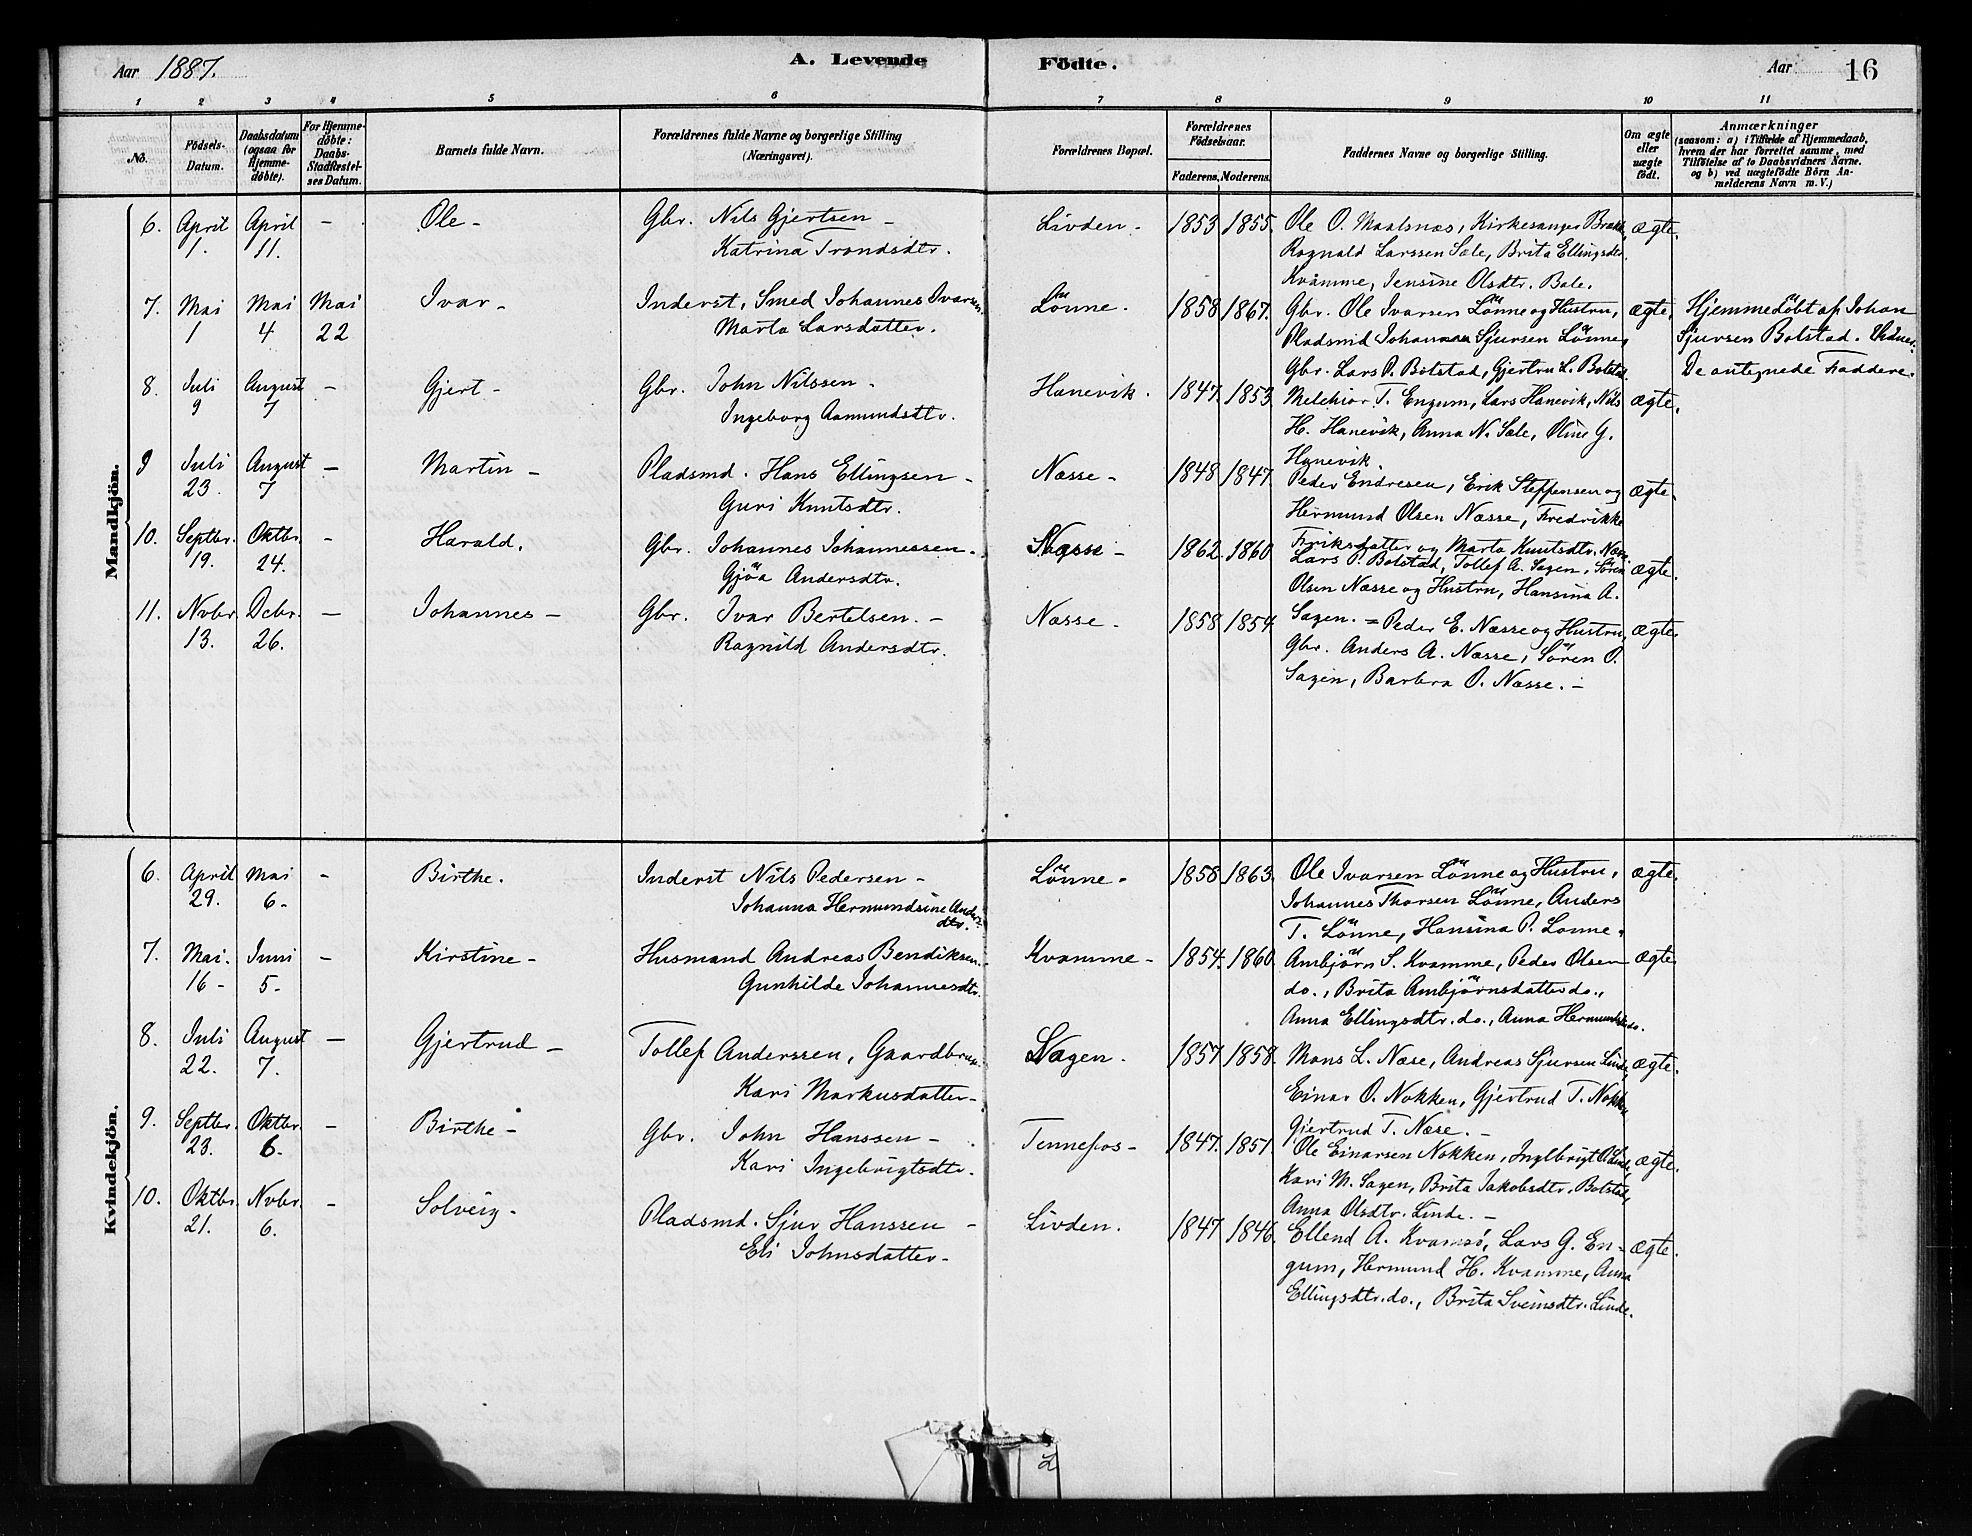 Aar 1887. A. Levende Födte. Aar 16
1 2 3 4 5 6 7 8 9 10 11
No. Födsels-Datum. Daabsdatum (ogsaa for Hjemme-döbte). For Hjemme-döbte: Daabs-Stadfæstel-ses Datum. Barnets fulde Navn. Forældrenes fulde Navne og borgerlige Stilling (Næringsvei). Forældrenes Bopæl. Forældrenes Födselsaar. Faderens. Moderens. Faddernes Navne og borgerlige Stilling. Om ægte eller uægte födt. Anmærkninger (saasom: a) i Tilfælde af Hjemmedaab, hvem der har forrettet samme, med Tilföielse af to Daabsvidners Navne. og b) ved uægtefödte Börn An-melderens Navn m.V.)
Mandkjön.
6. April April - Ole - Gbr. Nils Gjertsen - Livden - 1853 1855. Ole O. Maalsnæs, Kirkesanger ægte.
1. 11. Katrina Trondsdtr. Ragnald Larssen Sæle, Brita Ellingsdtr.
Kvamme, Jensine Olsdtr. Bale.
7. Mai Mai Mai Ivar - Inderst, Smed Johannes Ivarsen Lönne. 1858 1867. Gbr. Ole Ivarsen Lönne og Hustru, ægte, Hjemmedöbt af Johan
1 4 22 Marta Larsdatter. Pladsmd Johannes Sjursen Lönne, Sjursen Bolstad.
Gbr. Lars P. Bolstad, Gjertru L. Bolstad. De antegnede Faddere.
8. Juli August - Gjert - Gbr. John Nilssen - Hanevik. 1847. 1853 Melchior T. Engum, Lars Hanevik, Nils ægte.
9 7 Ingeborg Aamundsdtr. H. Hanevik, Anna N. Sæle, Oline G.
Hanevik.
9 Juli August - Martin - Pladsmd. Hans Ellingsen - Næsse - 1848 1847. Peder Endresen, Erik Steffensen og ægte.
23. 7 Guri Knutsdtr. Hermund Olsen Næsse, Fredrikke
Eriksdatter og Marta Knutsdtr. Næsse
10. Septbr. Oktbr. - Harald. Gbr. Johannes Johannessen - Næsse - 1862. 1860 Lars P. Bolstad, Tollef A. Sagen, Sören ægte.
19. 24. Gjöa Andersdtr. Olsen Næsse og Hustru, Hansina A.
Sagen. =
11. Novbr. Debr. - Johannes - Gbr. Ivar Bertelsen. - Næsse. 1858 1854 Peder E. Næsse og Hustru, ægte
13. 26. Ragnild Andersdtr. Gbr. Anders A. Næsse, Sören P.
Sagen, Barbra O. Næsse. -
Kvindekjön.
6. April Mai - Birthe. Inderst Nils Pedersen - Lönne - 1858 1863. Ole Ivarsen Lönne og Hustru, ægte.
29. 6 - Johanna Hermundsine Anders- Johannes Thorsen Lönne, Anders
dtr. T. Lönne, Hansina P. Lonne.
7. Mai. Juni - Kirstine - Husmand Andreas Bendiksen. Kvamme - 1854. 1860 Ambjörn S. Kvamme, Peder Olsen ægte
16 - 5 - Gunhilde Johannesdtr. do., Brita Ambjörnsdatter do.,
Anna Ellingsdtr. do., Anna
8. Juli August - Gjertrud - Tollef Anderssen, Gaardbrug. Sagen. 1857. 1858. Mons L. Næse, Andreas Sjursen Linde, ægte.
22. 7. Kari Markusdatter - Einar O. Nokken, Gjertrud T. Nokken,
Gjertrud T. Næse. -
9. Septbr. Oktbr. - Birthe - Gbr. John Hanssen - Tennefos - 1847. 1851. Ole Einarsen Nokken, Ingebrigt O. Linde, ægte.
23. 6 - Kari Ingebrigtsdtr. Kari M. Sagen, Brita Jakobsdtr. Bolstad,
Anna Olsdtr. Linde. -
10. Oktbr. Novbr. - Solveig - Pladsmd. Sjur Hanssen - Livden. 1847 1846. Ellend A. Kvamsö, Lars G. En- ægte.
21. 6. Eli Johnsdatter - gum, Hermund H. Kvamme, Anna
Ellingsdtr. do., Brita Sveinsdtr. Linde.